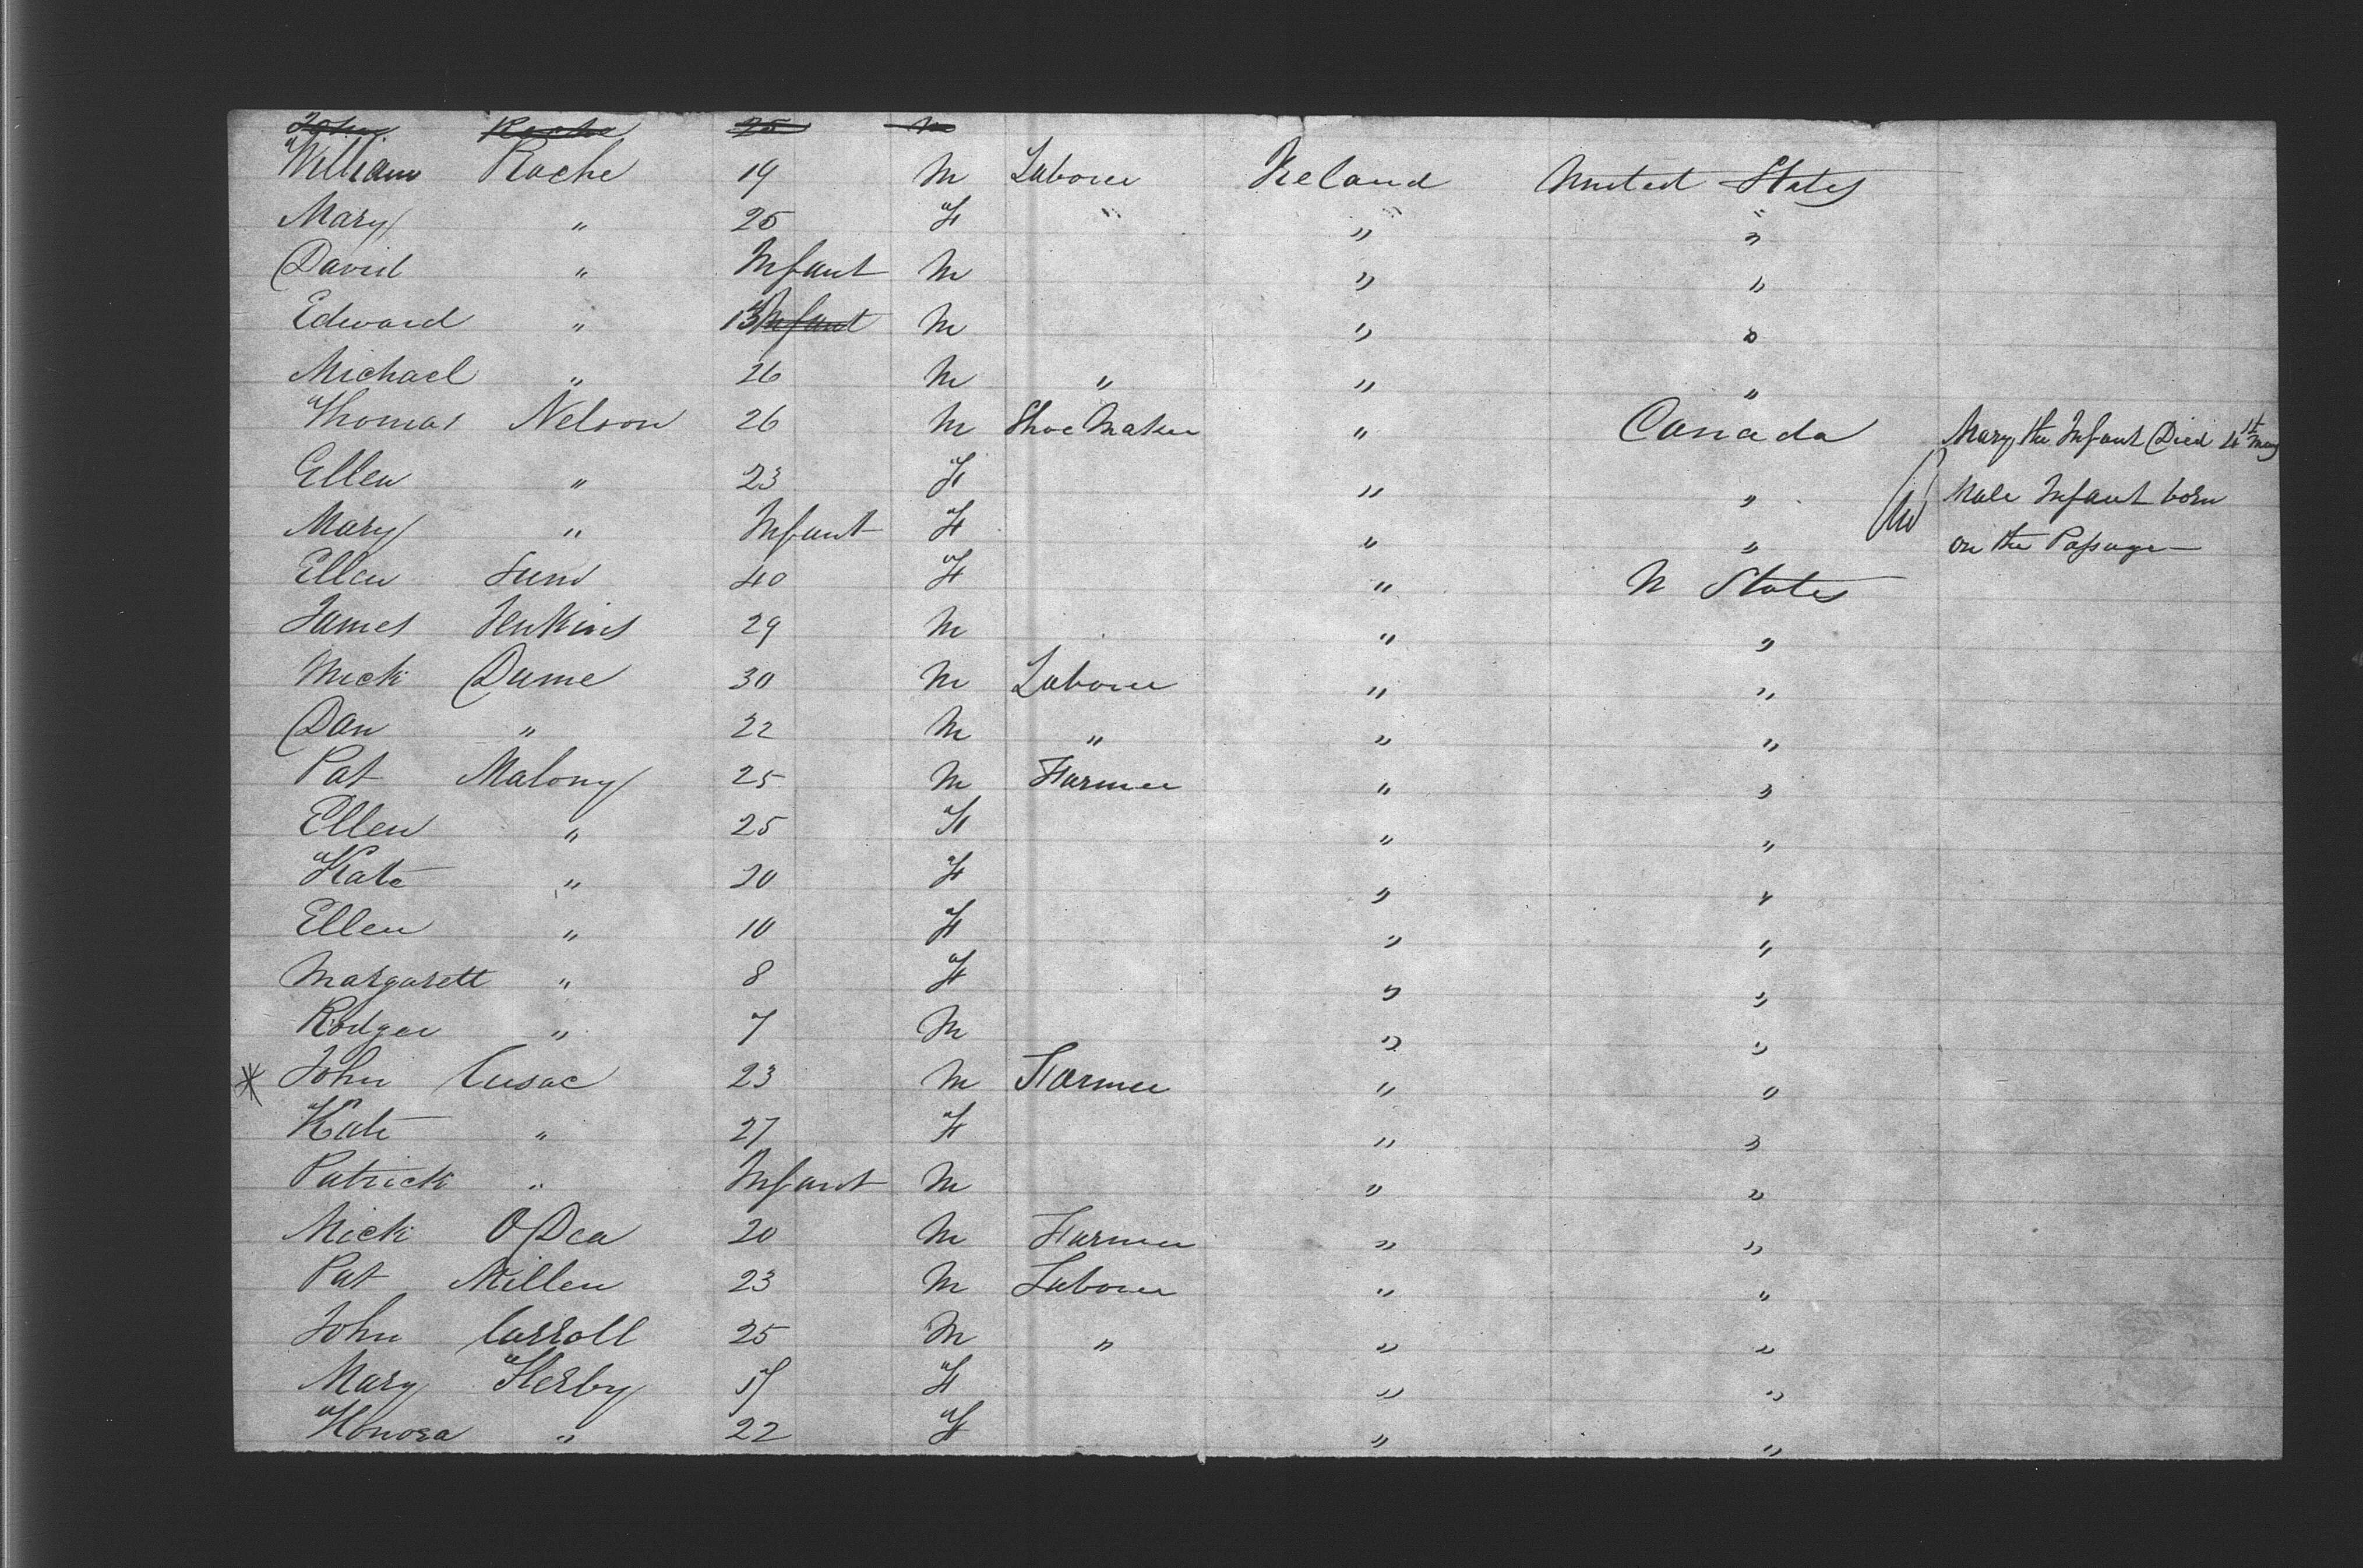 John Roche 25 M
William Roche 19 M Laborer Ireland United States
Mary " 25 F " " "
David " Infant M " "
Edward " 13 Infant M " "
Michael " 26 M " " "
Thomas Nelson 26 M Shoe Maker " Canada Mary the Infant Died 4th May
Ellen " 23 F " " Male Infant born
Mary " Infant F " " on the Passage
Ellen 40 F " U States
James Jenkins 29 M " "
Mick Dume 30 M Laborer " "
Dan " 22 M " " "
Pat Malony 25 M Farmer " "
Ellen " 25 F " "
Kate " 20 F " "
Ellen " 10 F " "
Margarett " 8 F " "
Rodger " 7 M " "
* John Cusac 23 M Farmer " "
Kate " 27 F " "
Patrick " Infant M " "
Mick ODea 20 M Farmer " "
Pat Millen 23 M Laborer " "
John Carroll 25 M " " "
Mary Herby F " "
Honora " 22 F " "